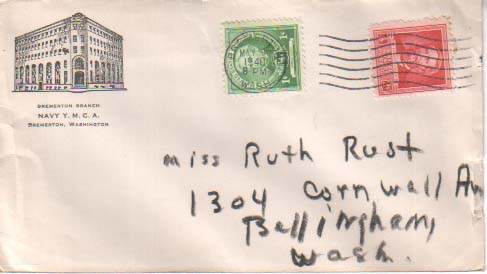 BREMERTON BRANCH
NAVY Y. M. C. A.
BREMERTON, WASHINGTON
1940
8 PM
WASH.
Miss Ruth Rust
1304 Cornwall Av
Bellingham,
Wash.